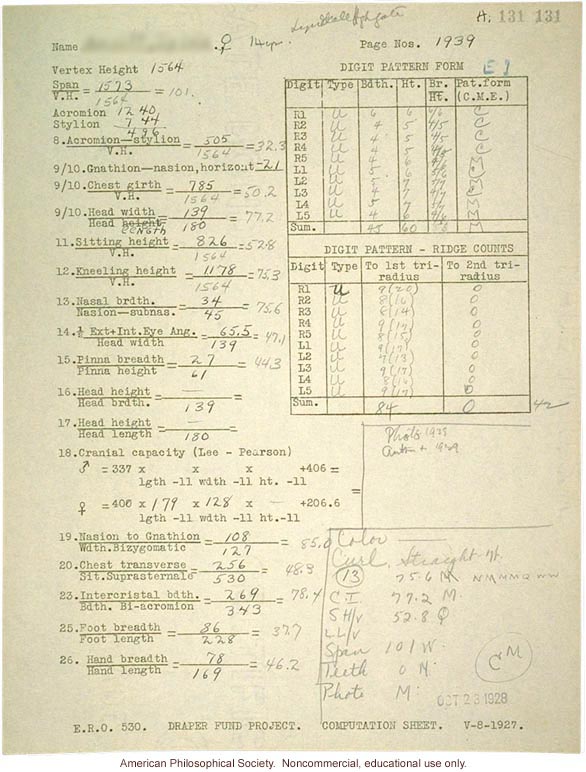 A. 131 131
Name ♀ 14 yr. Page Nos. 1939
Vertex Height 1564
Span 1573 = 101.
V.H. 1564
Acromion 1240
Stylion 744
496
8.Acromion—stylion 505 = 32.3
V.H. 1564
9/10.Gnathion—nasion,horizont -21
9/10.Chest girth 785 = 50.2
V.H. 1564
9/10.Head width 139 = 77.2
Head height LENGTH 180
11.Sitting height 826 = 52.8
V.H. 1564
12.Kneeling height 1178 = 75.3
V.H. 1564
13.Nasal brdth. 34 = 75.6
Nasion—subnas. 45
14.½ Ext+Int.Eye Ang. 65.5 = 47.1
Head width 139
15.Pinna breadth 27 = 44.3
Pinna height 61
16.Head height —
Head brdth. 139
17.Head height —
Head length 180
18.Cranial capacity (Lee - Pearson)
♂ = 337 x x x +406 =
lgth -11 wdth -11 ht. -11
♀ = 400 x 179 x 128 x — +206.6 =
lgth -11 wdth -11 ht.-11
19.Nasion to Gnathion 108 = 85.0
Wdth.Bizygomatic 127
20.Chest transverse 256 = 48.3
Sit.Suprasternale 530
23.Intercristal bdth. 269 = 78.4
Bdth. Bi-acromion 343
25.Foot breadth 86 = 37.7
Foot length 228
26. Hand breadth 78 = 46.2
Hand length 169
DIGIT PATTERN FORM
Digit Type Bdth. Ht. Br. Ht. Pat.form (C.M.E.)
R1 U 6 6 C
R2 U 4 5 4/5 C
R3 U 4 5 4/5 C
R4 U 5 C
R5 U 4 6 4/6 M
L1 U 5 6 5/6
L2 U 7
L3 U 4 7 4/7
L4 U 5 7 5/7 M
L5 U 4 6 4/6 M
Sum. 45 60
DIGIT PATTERN - RIDGE COUNTS
Digit Type To 1st tri-radius To 2nd tri-radius
R1 U 9(20) 0
R2 U 8(16) 0
R3 U 8(14) 0
R4 U 9(17) 0
R5 U 8(15) 0
L1 U 9(17) 0
L2 U 7(13) 0
L3 U 9(17) 0
L4 U 8(16) 0
L5 U 9(17) 0
Sum. 84 0
Photo 1929
Color —
Curl, Straight
13 75.6 M
C.I. 77.2 M.
S H/v 52.8
LL/v
Span 101 W.
Teeth 0 N.
Photo M.
CM
OCT 23 1928
E.R.O. 530. DRAPER FUND PROJECT. COMPUTATION SHEET. V-8-1927.
American Philosophical Society. Noncommercial, educational use only.